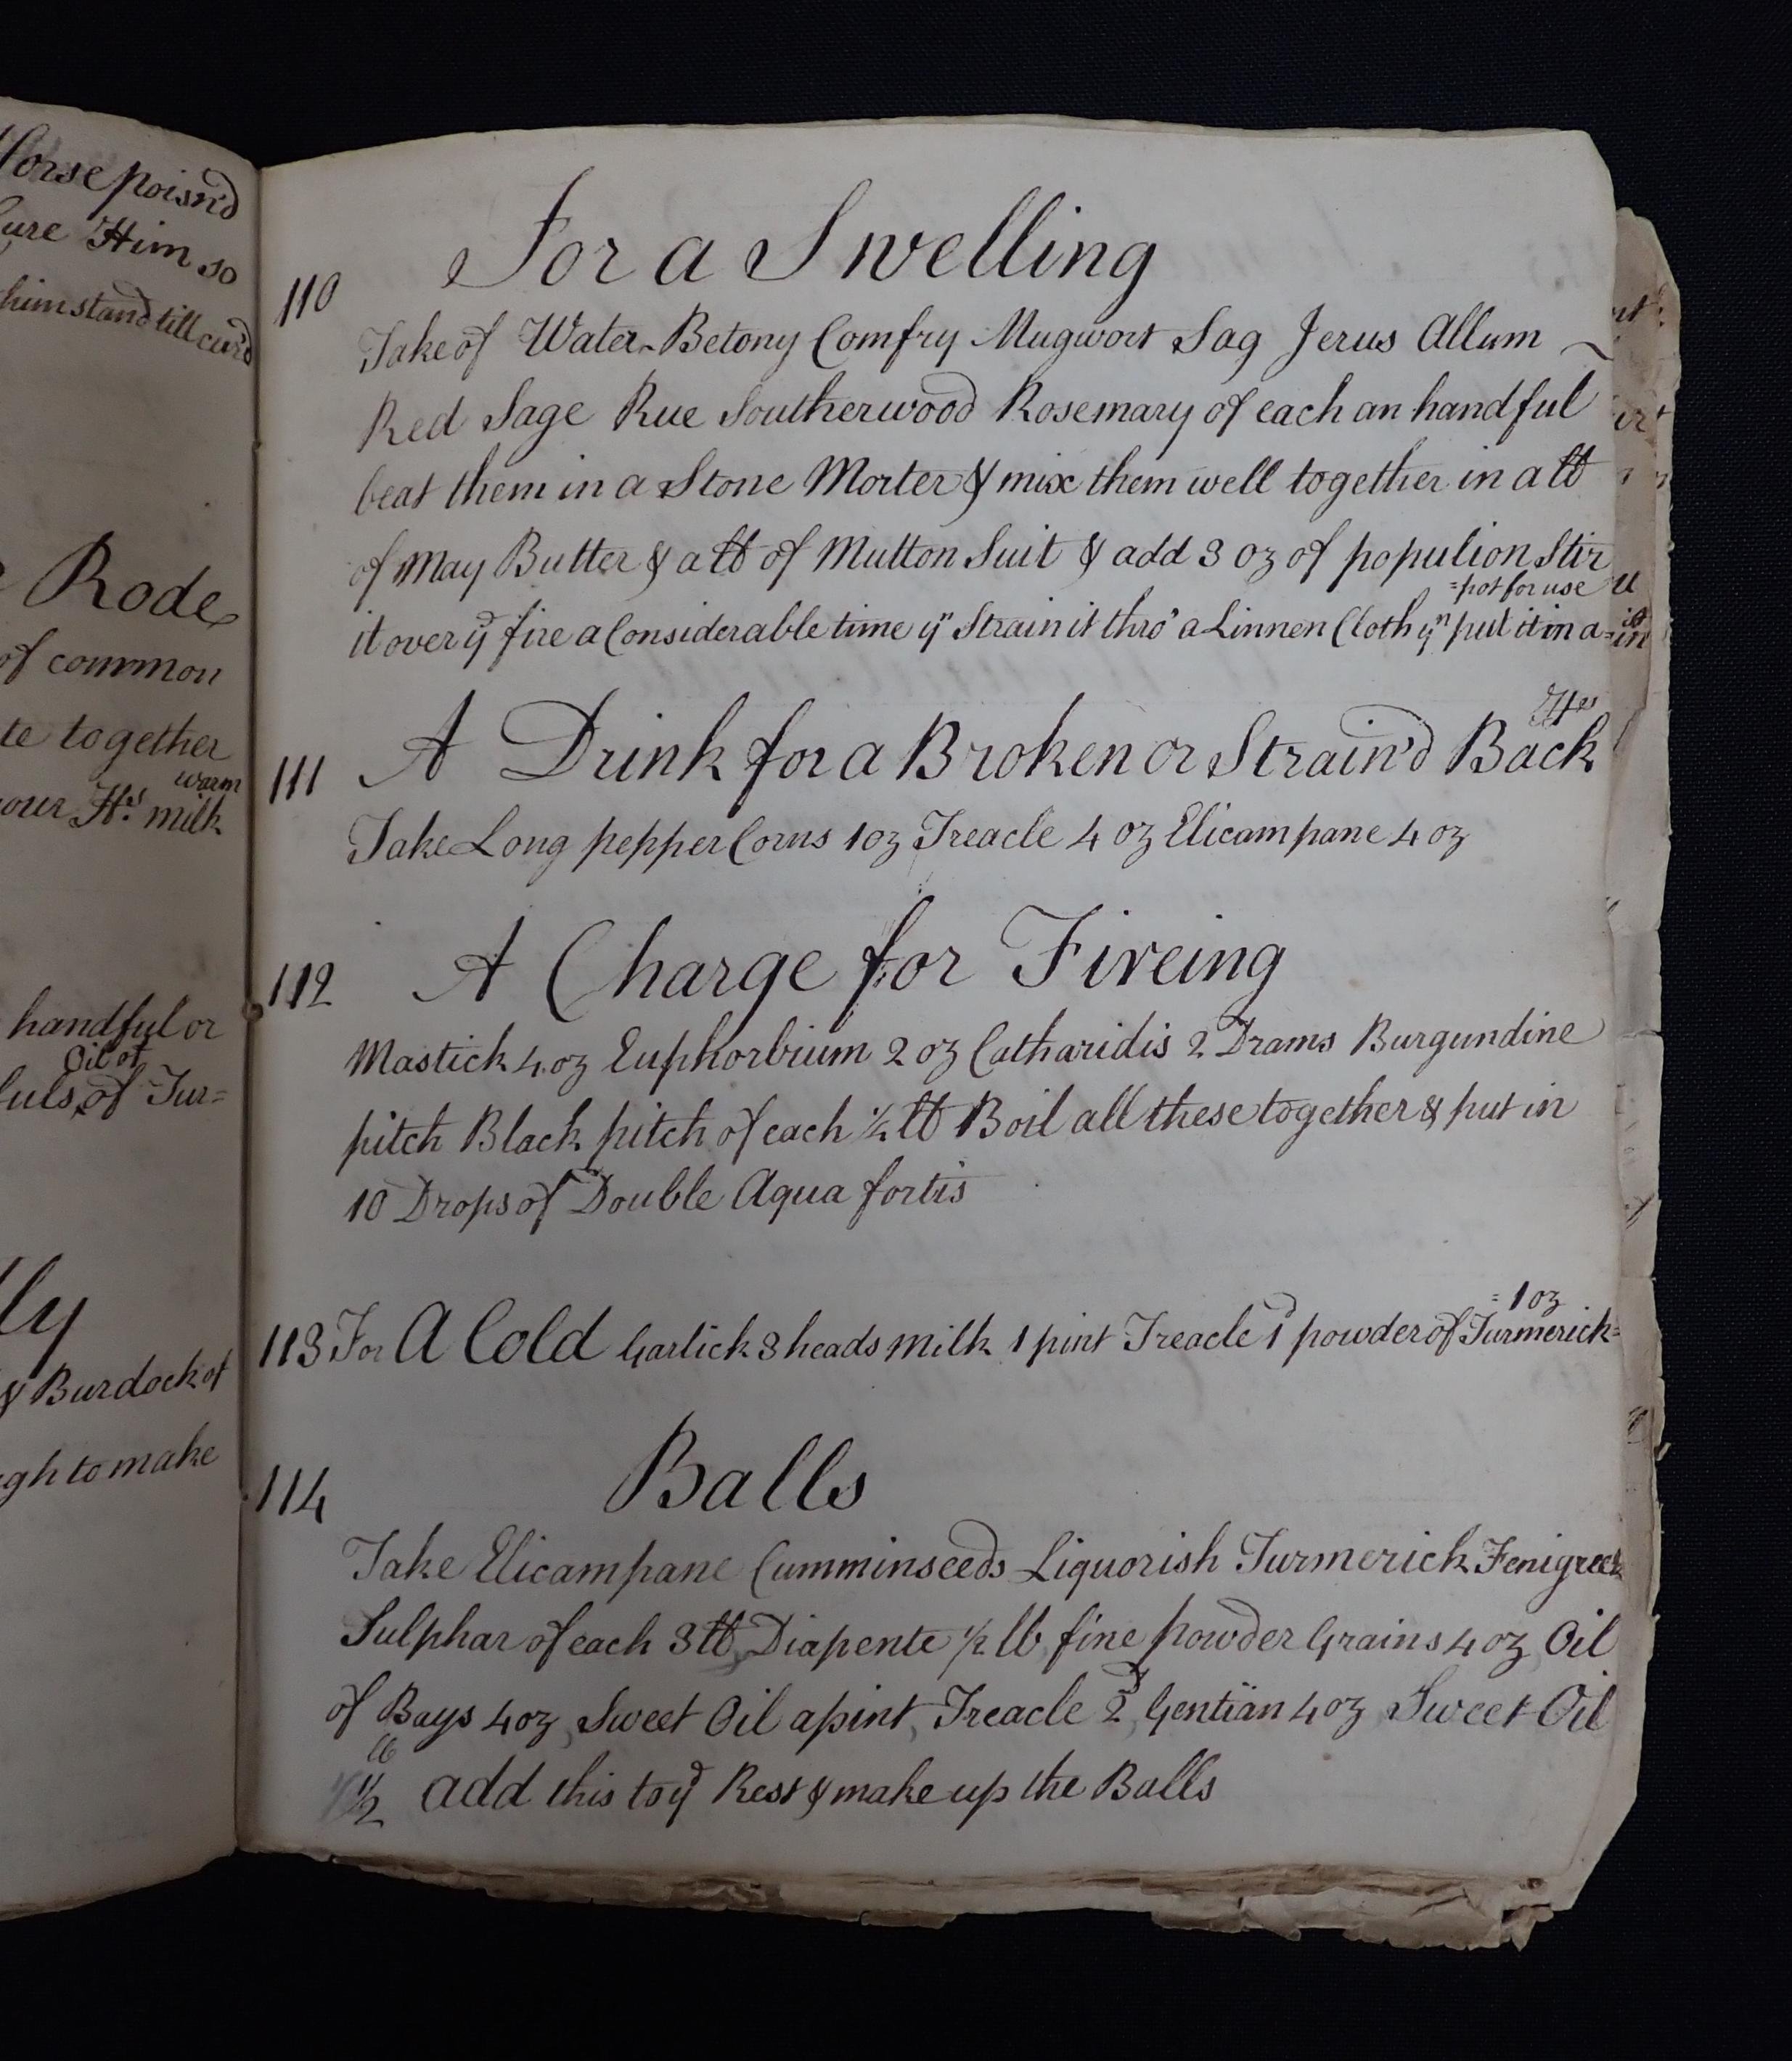 Horse poisn'd
Cure Him so
him stand till cur'd
Rode
of common
te together
warm
our Hs. milk
handful or
Oil of
fuls, of Tur=
lly
& Burdock of
gh to make
For a Swelling
110
Take of Water-Betony Comfry Mugwort Sag Jerus Allum
Red Sage Rue Southerwood Rosemary of each an handful
beat them in a Stone Morter & mix them well together in a lb
of May Butter & a lb of Mutton Suit & add 3 oz of populion Stir
=pot for use
it over ye fire a Considerable time yn Strain it thro' a Linnen Cloth yn put it in a=
Hs
111 A Drink for a Broken or Strain'd Back
Take Long pepper Corns 1 oz Treacle 4 oz Elicampane 4 oz
112 A Charge for Fireing
Mastick 4 oz Euphorbium 2 oz Catharidis 2 Drams Burgundine
pitch Black pitch of each ½ lb Boil all these together & put in
10 Drops of Double Aqua fortis
=1 oz
113 For A Cold Garlick 3 heads milk 1 pint Treacle 1d powder of Turmerick=
114 Balls
Take Elicampane Cumminseeds Liquorish Turmerick Fenigreek
Sulphar of each 3 lb, Diapente ½ lb, fine powder Grains 4 oz, Oil
of Bays 4 oz, Sweet Oil a pint, Treacle 2d, Gentiän 4 oz, Sweet Oil
lb
½ add this to ye Rest & make up the Balls